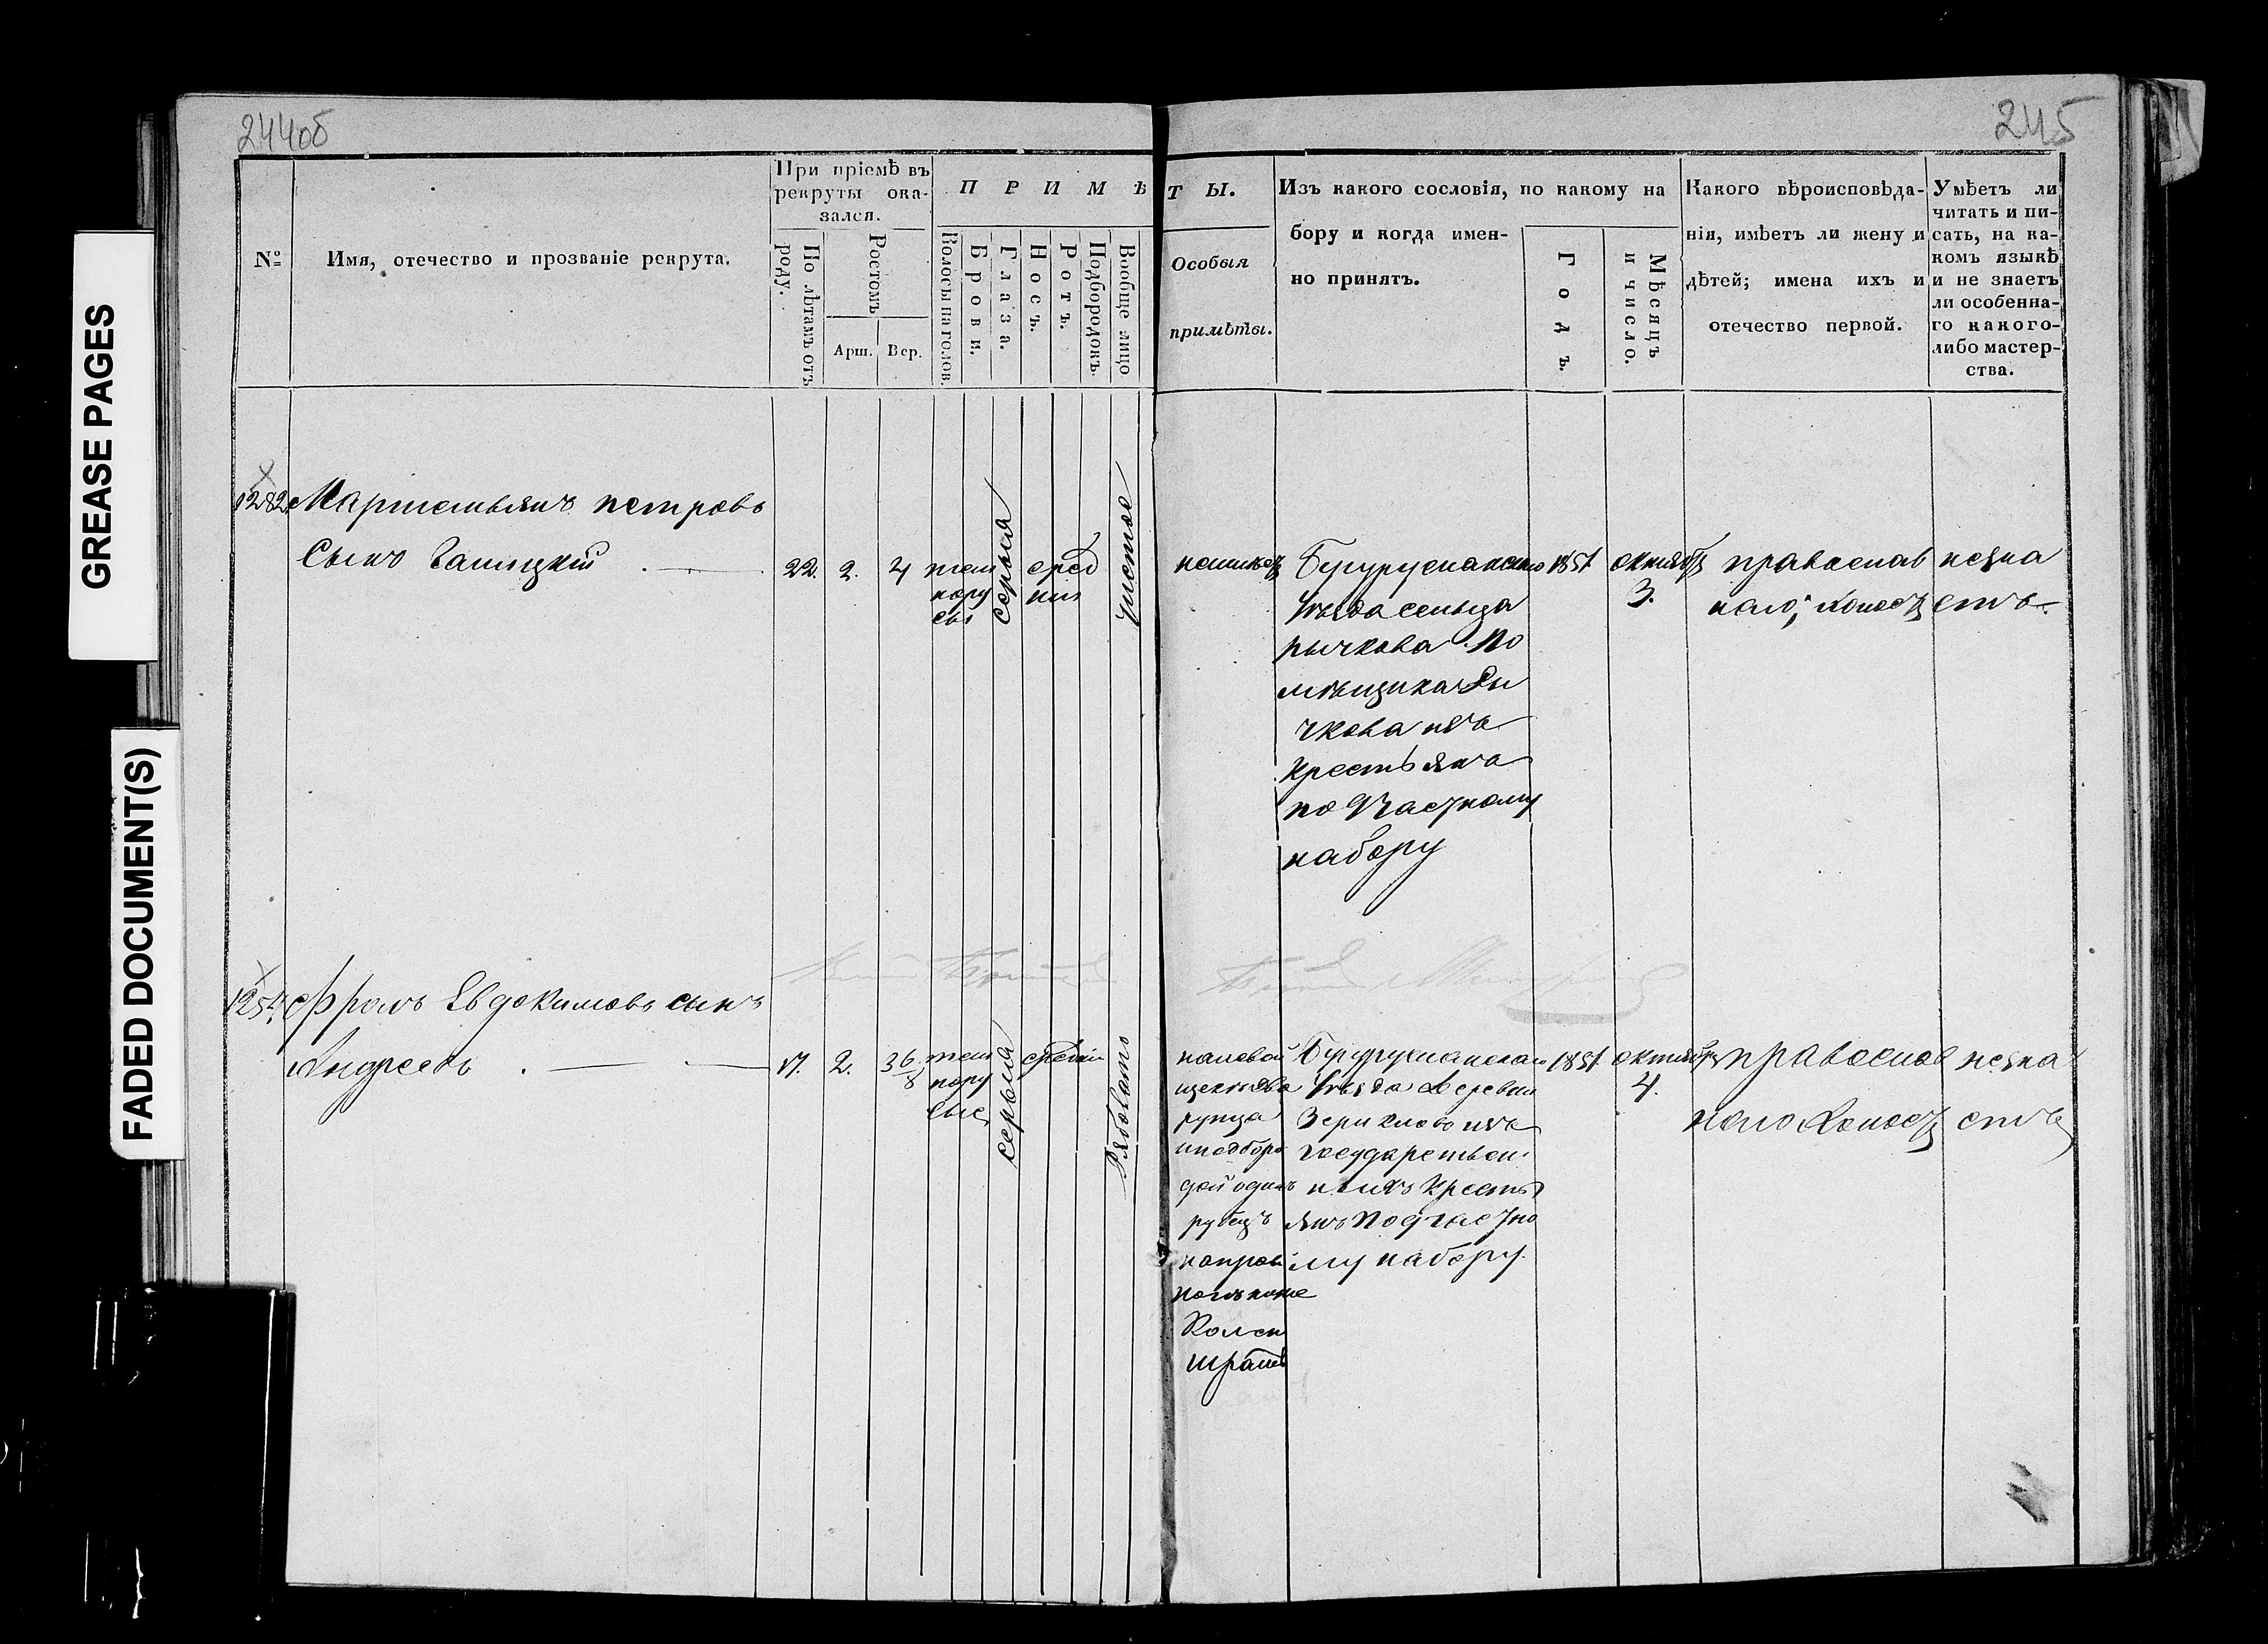 244об
245
GREASE PAGES
FADED DOCUMENT(S)
№
Имя, отечество и прозваніе рекрута.
При пріемѣ въ
рекруты ока-
зался.
По лѣтамъ отъ
роду.
Ростомъ
Арш.
Вер.
ПРИМѢ
Волосы на голов.
Брови.
Глаза.
Носъ.
Ротъ.
Подбородокъ.
Вообще лицо
ТЫ.
Особыя
примѣты.
Изъ какого сословія, по какому на
бору и когда имен-
но принятъ.
Годъ.
Мѣсяцъ
и число.
Какого вѣроисповѣда-
нія, имѣетъ ли жену и
дѣтей; имена ихъ и
отечество первой.
Умѣетъ ли
читать и пи-
сать, на ка-
комъ языкѣ
и не знаетъ
ли особенна-
го какого-
либо мастер-
ства.
1282
Мартемьянъ петровъ
Сынъ
22.
2.
4
тем
нору
сы
серыя
сред
нія
чистое
Бугурусланскаго
Уѣзда сельца
рычкова По
мѣщика Ры
чкова изъ
крестьянъ
по Частному
набору
1851
октября
3.
православ
наго, холостъ
незна
етъ.
125
Фролъ Евдокимовъ сынъ
Андреевъ
17.
2.
3 6/8
тем
нору
сые
серыя
средніи
Рябовато
на левой
щеке два
рубца
и подборо
дой одинъ
рубецъ
на правой
ноге ниже
Колен
шрамъ
Бугурусланскаго
Уѣзда Деревни
изъ
государствен
ныхъ Кресть
янъ По частно
му набору.
1851
октября
4.
православ
наго Холостъ
незна
етъ